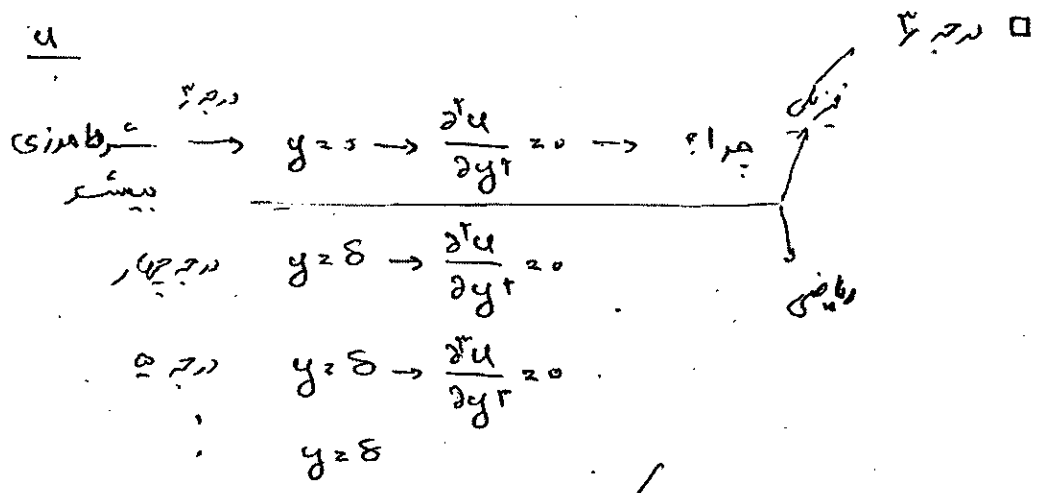 □ درجه ۳
u
شرط مرزی بیشتر درجه ۳ → y = 0 → ∂²u/∂y² = 0 → چرا؟ فیزیکی
ریاضی
درجه چهار y = δ → ∂²u/∂y² = 0
درجه ۵ y = δ → ∂³u/∂y³ = 0
⋮ y = δ